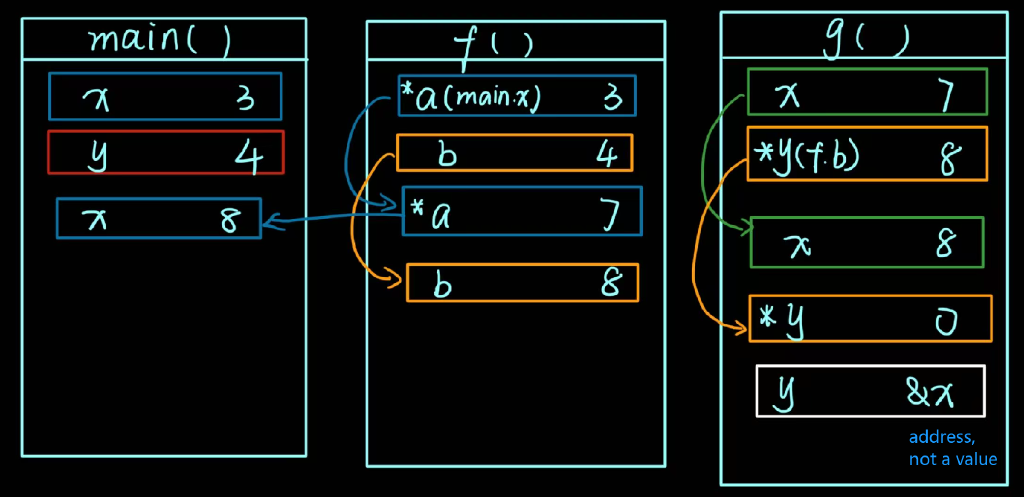 main( )
x 3
y 4
x 8
f( )
*a(main.x) 3
b 4
*a 7
b 8
g( )
x 7
*y(f.b) 8
x 8
*y 0
y &x
address,
not a value